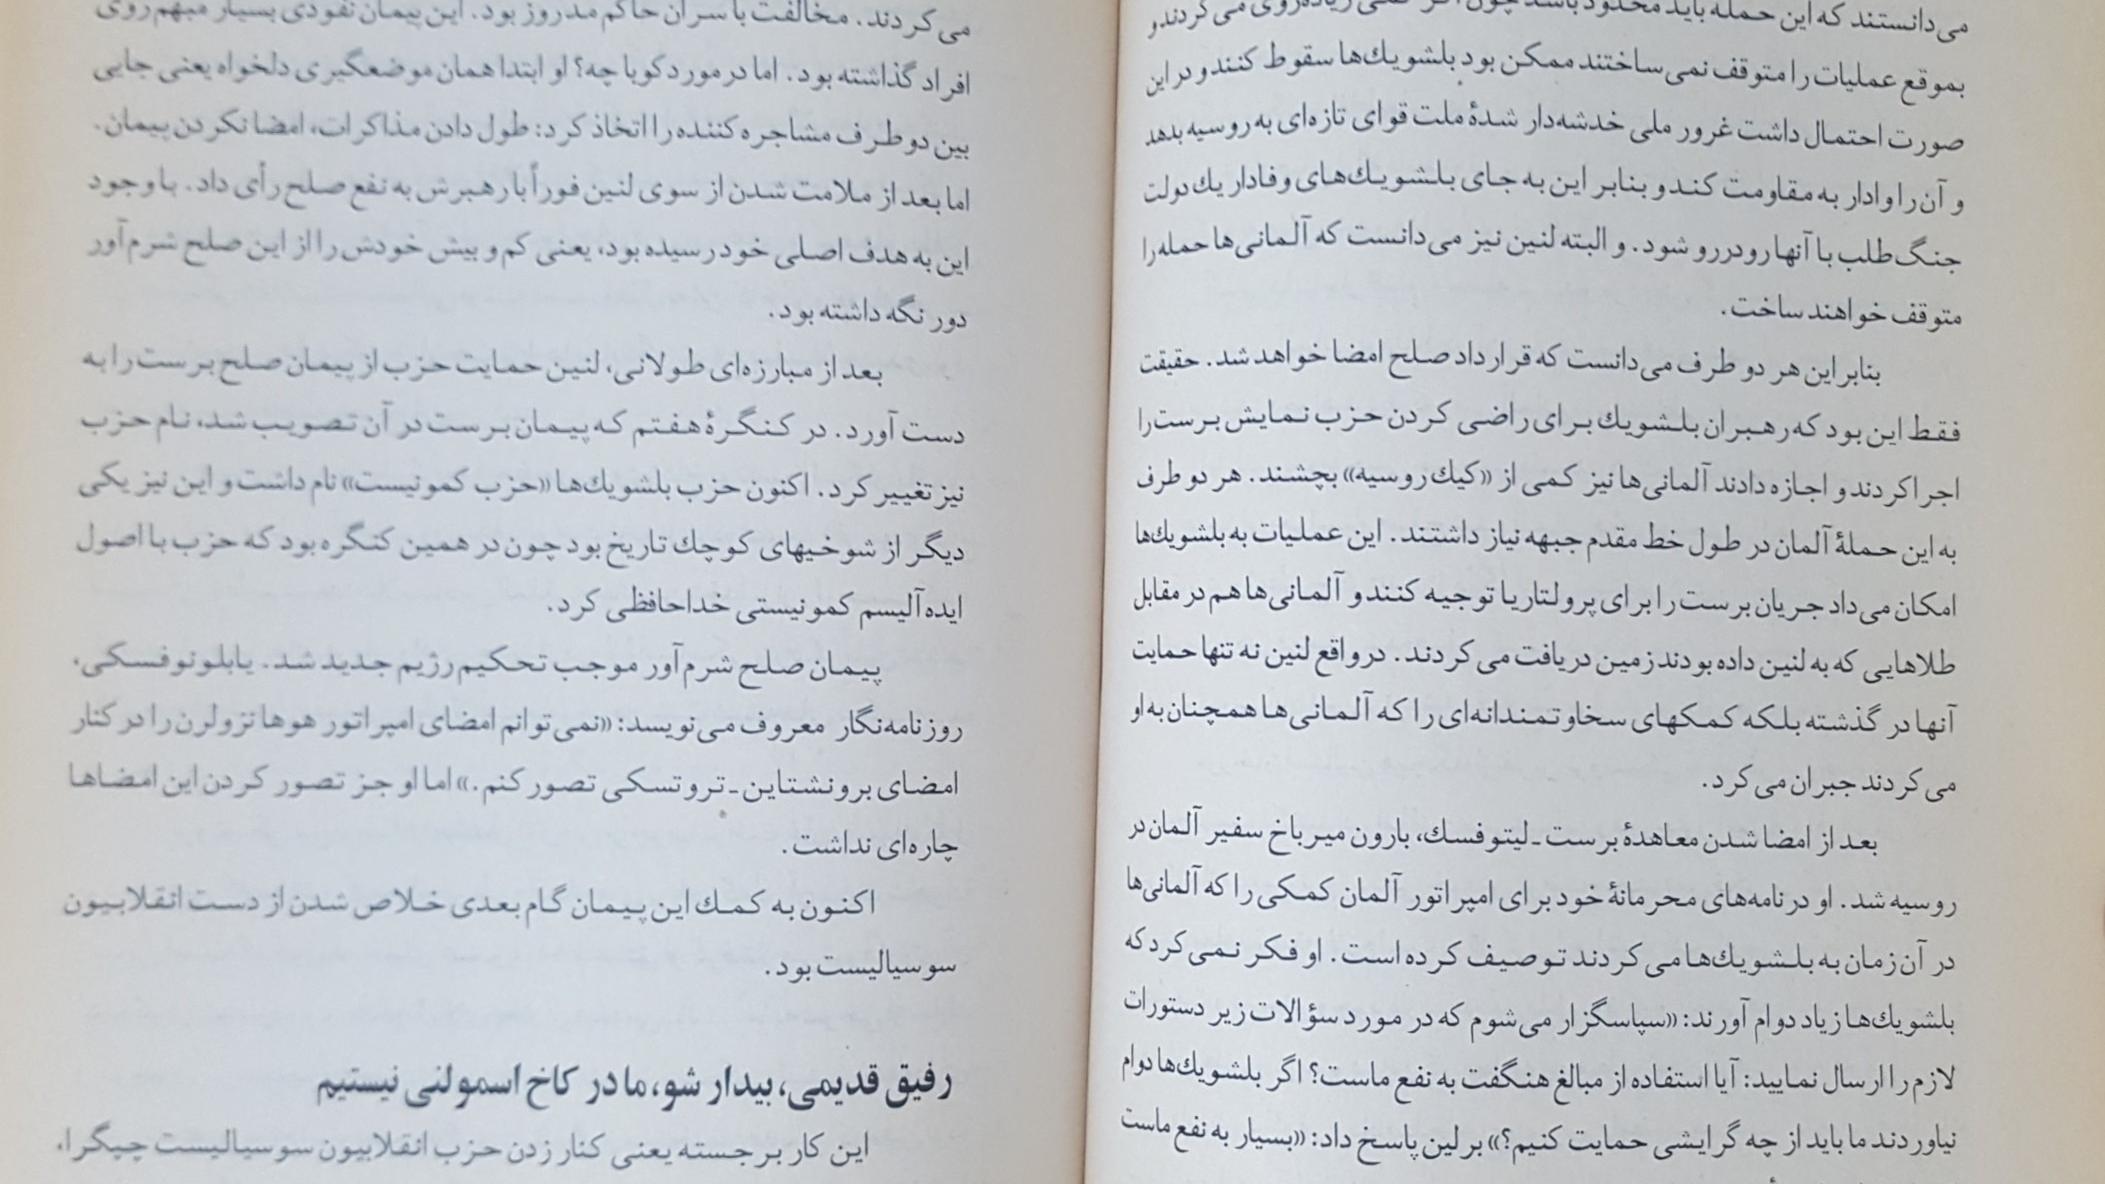 می‌دانستند که این حمله باید محدود باشد چون اگر کمی زیاده‌روی می‌کردند و
بموقع عملیات را متوقف نمی‌ساختند ممکن بود بلشویك‌ها سقوط کنند و در این
صورت احتمال داشت غرور ملی خدشه‌دار شدهٔ ملت قوای تازه‌ای به روسیه بدهد
و آن را وادار به مقاومت کند و بنابر این به جای بلشویك‌های وفادار یك دولت
جنگ‌طلب با آنها رودررو شود. و البته لنین نیز می‌دانست که آلمانی‌ها حمله را
متوقف خواهند ساخت.
بنابراین هر دو طرف می‌دانست که قرارداد صلح امضا خواهد شد. حقیقت
فقط این بود که رهبران بلشویك برای راضی کردن حزب نمایش برست را
اجرا کردند و اجازه دادند آلمانی‌ها نیز کمی از «کیك روسیه» بچشند. هر دو طرف
به این حملهٔ آلمان در طول خط مقدم جبهه نیاز داشتند. این عملیات به بلشویك‌ها
امکان می‌داد جریان برست را برای پرولتاریا توجیه کنند و آلمانی‌ها هم در مقابل
طلاهایی که به لنین داده بودند زمین دریافت می‌کردند. در واقع لنین نه تنها حمایت
آنها در گذشته بلکه کمکهای سخاوتمندانه‌ای را که آلمانی‌ها همچنان به او
می‌کردند جبران می‌کرد.
بعد از امضا شدن معاهدهٔ برست ـ لیتوفسك، بارون میرباخ سفیر آلمان در
روسیه شد. او در نامه‌های محرمانهٔ خود برای امپراتور آلمان کمکی را که آلمانی‌ها
در آن زمان به بلشویك‌ها می‌کردند توصیف کرده است. او فکر نمی‌کرد که
بلشویك‌ها زیاد دوام آورند: «سپاسگزار می‌شوم که در مورد سؤالات زیر دستورات
لازم را ارسال نمایید: آیا استفاده از مبالغ هنگفت به نفع ماست؟ اگر بلشویك‌ها دوام
نیاوردند ما باید از چه گرایشی حمایت کنیم؟» برلین پاسخ داد: «بسیار به نفع ماست
می‌کردند. مخالفت با سران حاکم مد روز بود. این پیمان نفوذی بسیار مبهم روی
افراد گذاشته بود. اما در مورد کوبا چه؟ او ابتدا همان موضعگیری دلخواه یعنی جایی
بین دو طرف مشاجره کننده را اتخاذ کرد: طول دادن مذاکرات، امضا نکردن پیمان.
اما بعد از ملامت شدن از سوی لنین فوراً با رهبرش به نفع صلح رأی داد. با وجود
این به هدف اصلی خود رسیده بود، یعنی کم و بیش خودش را از این صلح شرم‌آور
دور نگه داشته بود.
بعد از مبارزه‌ای طولانی، لنین حمایت حزب از پیمان صلح برست را به
دست آورد. در کنگرهٔ هفتم که پیمان برست در آن تصویب شد، نام حزب
نیز تغییر کرد. اکنون حزب بلشویك‌ها «حزب کمونیست» نام داشت و این نیز یکی
دیگر از شوخیهای کوچك تاریخ بود چون در همین کنگره بود که حزب با اصول
ایده‌آلیسم کمونیستی خداحافظی کرد.
پیمان صلح شرم‌آور موجب تحکیم رژیم جدید شد. یابلونوفسکی،
روزنامه‌نگار معروف می‌نویسد: «نمی‌توانم امضای امپراتور هوهانزولرن را در کنار
امضای برونشتاین ـ تروتسکی تصور کنم.» اما او جز تصور کردن این امضاها
چاره‌ای نداشت.
اکنون به کمك این پیمان گام بعدی خلاص شدن از دست انقلابیون
سوسیالیست بود.
رفیق قدیمی، بیدار شو، ما در کاخ اسمولنی نیستیم
این کار برجسته یعنی کنار زدن حزب انقلابیون سوسیالیست چپگرا،